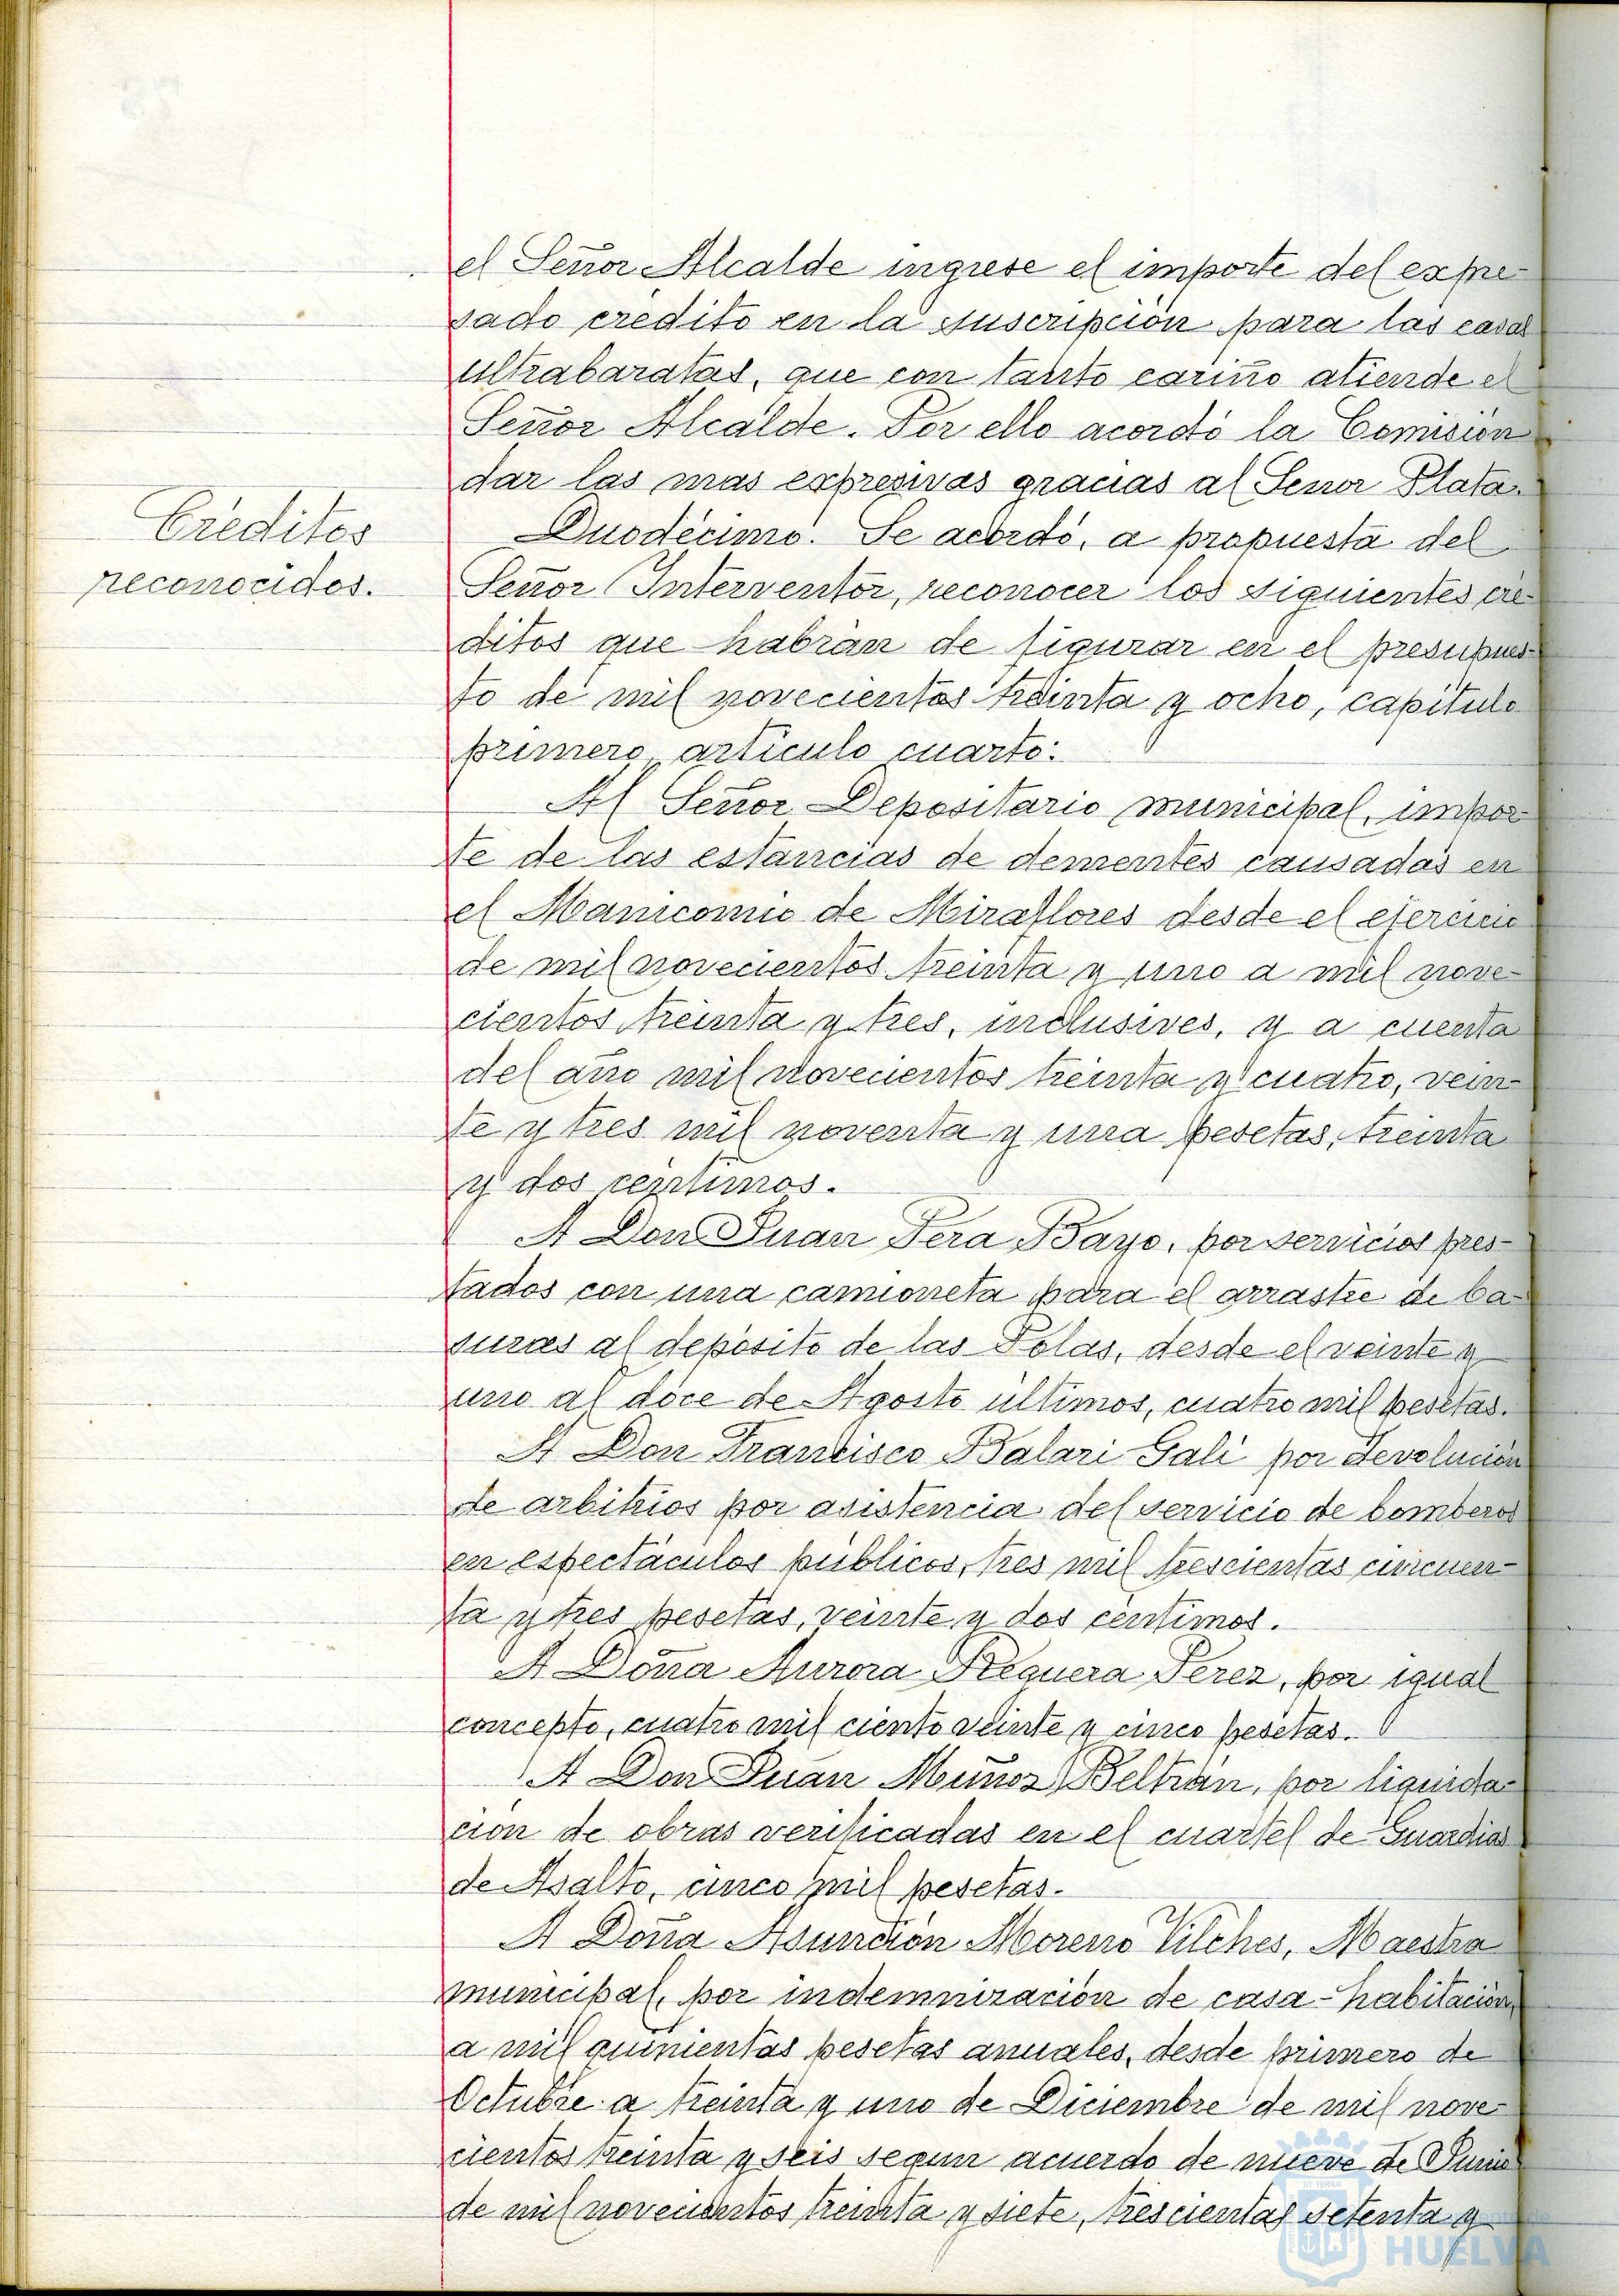 el Señor Alcalde ingrese el importe del expre-
sado credito en la suscripción para las casas
ultrabaratas, que con tanto cariño atiende el
Señor Alcalde. Por ello acordó la Comisión
dar las mas expresivas gracias al Señor Plata.
Creditos
reconocidos.
Duodécimo. Se acordó, a propuesta del
Señor Interventor, reconocer los siguientes cre-
ditos que habrán de figurar en el presupues-
to de mil novecientos treinta y ocho, capitulo
primero, articulo cuarto:
Al Señor Depositario municipal, impor-
te de las estancias de dementes causadas en
el Manicomio de Miraflores desde el ejercicio
de mil novecientos treinta y uno a mil nove-
cientos treinta y tres, inclusives, y a cuenta
del año mil novecientos treinta y cuatro, vein-
te y tres mil noventa y una pesetas, treinta
y dos centimos.
A Don Juan Pera Bayo, por servicios pres-
tados con una camioneta para el arrastre de ba-
suras al depósito de las Polas, desde el veinte y
uno al doce de Agosto últimos, cuatro mil pesetas.
A Don Francisco Balari Gali por devolución
de arbitrios por asistencia del servicio de bomberos
en espectáculos públicos, tres mil trescientas cincuen-
ta y tres pesetas, veinte y dos centimos.
A Doña Aurora Requera Perez, por igual
concepto, cuatro mil ciento veinte y cinco pesetas.
A Don Juan Muñoz Beltrán, por liquida-
ción de obras verificadas en el cuartel de Guardias
de Asalto, cinco mil pesetas.
A Doña Asunción Moreno Vilches, Maestra
municipal, por indemnización de casa-habitación,
a mil quinientas pesetas anuales, desde primero de
Octubre a treinta y uno de Diciembre de mil nove-
cientos treinta y seis segun acuerdo de nueve de Junio
de mil novecientos treinta y siete, trescientas setenta y
HUELVA